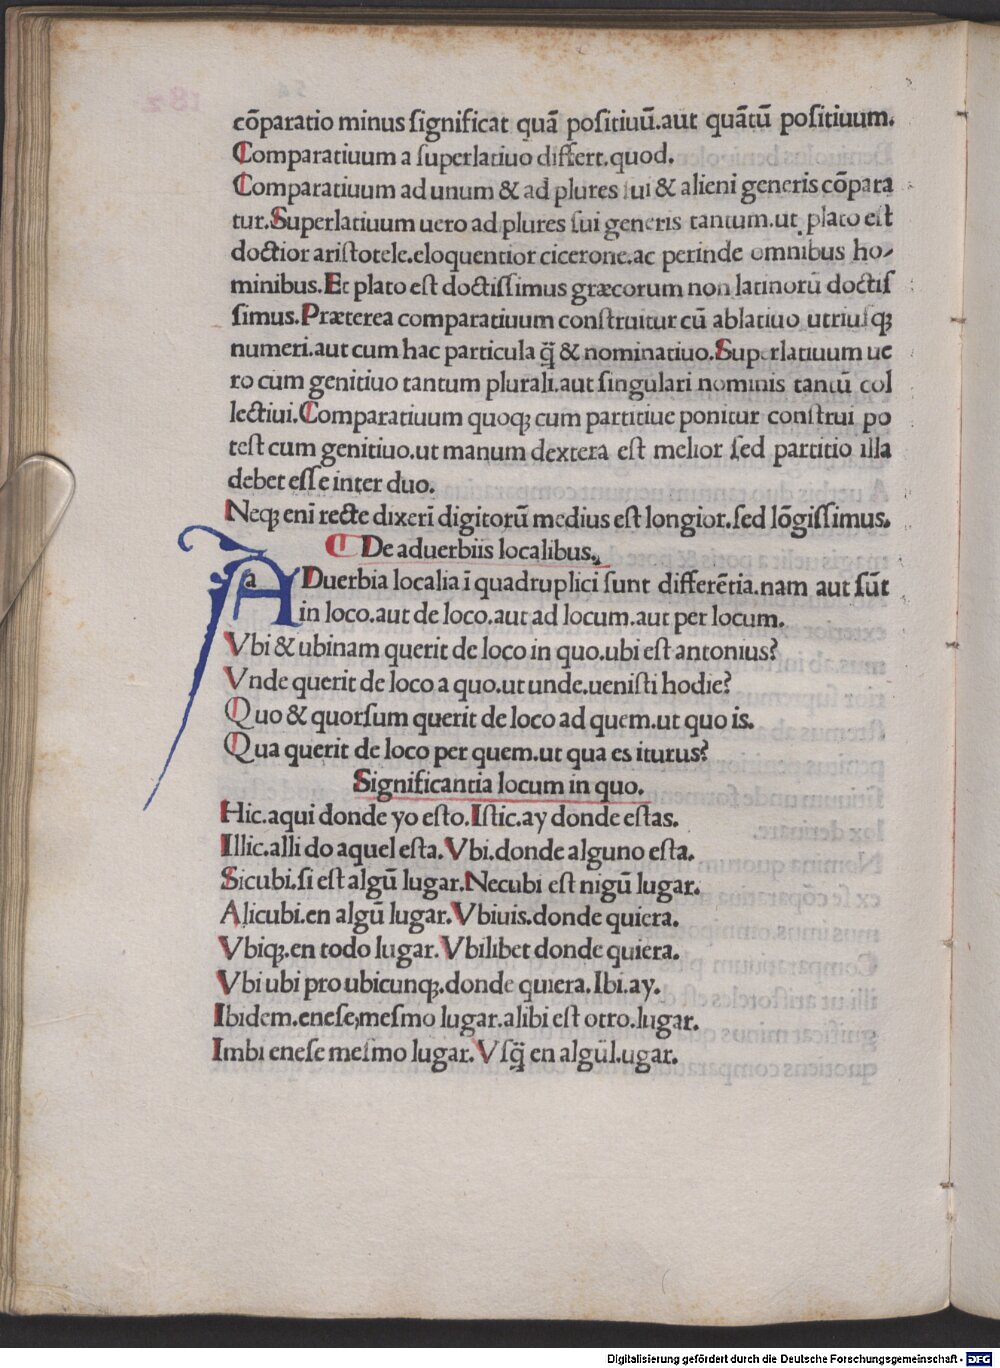 cōparatio minus ſignificat quã poſitiuũ.aut quãtũ poſitiuum.
Comparatiuum a ſuperlatiuo differt.quod.
Comparatiuum ad unum & ad plures ſui & alieni generis cōpara
tur.Superlatiuum uero ad plures ſui generis tantum.ut plato eſt
doctior ariſtotele.eloquentior cicerone.ac perinde omnibus ho-
minibus.Et plato eſt doctiſſimus græcorum non latinorũ doctiſ
ſimus.Præterea comparatiuum conſtruitur cũ ablatiuo utriuſqꝫ
numeri.aut cum hac particula q̃ & nominatiuo.Superlatiuum ue
ro cum genitiuo tantum plurali.aut ſingulari nominis tantũ col
lectiui.Comparatiuum quoqꝫ cum partitiue ponitur conſtrui po
teſt cum genitiuo.ut manum dextera eſt melior ſed partitio illa
debet eſſe inter duo.
Neqꝫ eni recte dixeri digitorũ medius eſt longior.ſed lōgiſſimus.
De aduerbiis localibus.
ADuerbia localia ī quadruplici ſunt differētia.nam aut ſũt
in loco.aut de loco.aut ad locum.aut per locum.
Vbi & ubinam querit de loco in quo.ubi eſt antonius?
Vnde querit de loco a quo.ut unde.ueniſti hodie?
Quo & quorſum querit de loco ad quem.ut quo is.
Qua querit de loco per quem.ut qua es iturus?
Significantia locum in quo.
Hic.aqui donde yo eſto.Iſtic.ay donde eſtas.
Illic.alli do aquel eſta.Vbi.donde alguno eſta.
Sicubi.ſi eſt algũ lugar.Necubi eſt nigũ lugar.
Alicubi.en algũ lugar.Vbiuis.donde quiera.
Vbiqꝫ.en todo lugar.Vbilibet donde quiera.
Vbi ubi pro ubicunqꝫ.donde quiera.Ibi.ay.
Ibidem.eneſe,meſmo lugar.alibi eſt otro.lugar.
Imbi eneſe meſmo lugar.Vſq̃ en algũl.ugar.
Digitalisierung gefördert durch die Deutsche Forschungsgemeinschaft - DFG